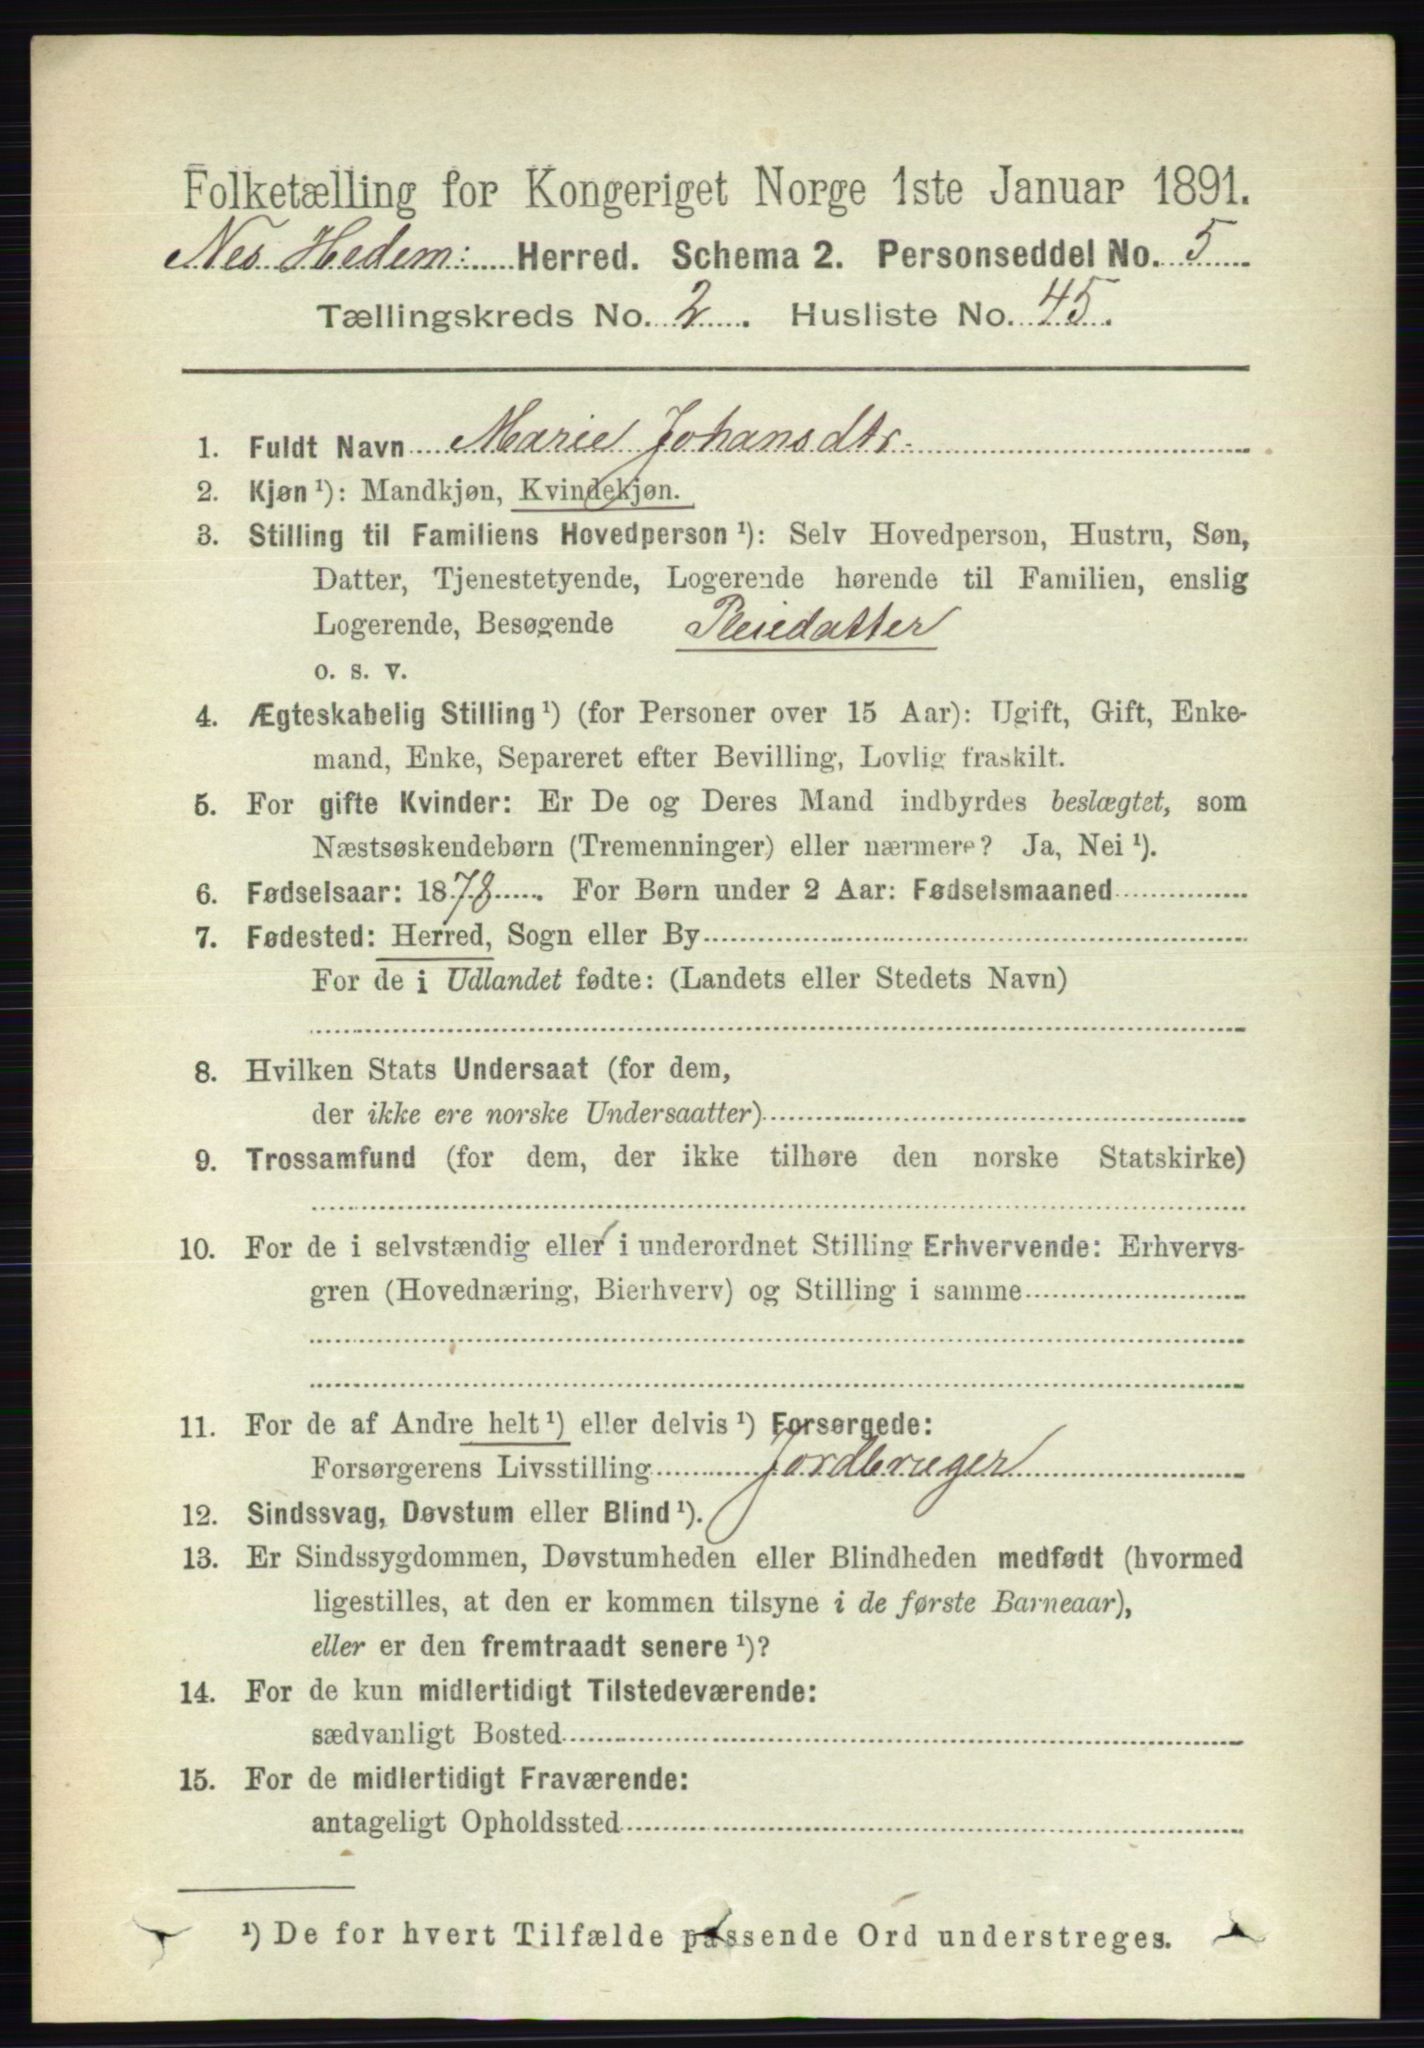 Folketælling for Kongeriget Norge 1ste Januar 1891.
Nes Hedem: Herred. Schema 2. Personseddel No. 5
Tællingskreds No. 2. Husliste No. 45.
1. Fuldt Navn Marie Johansdtr.
2. Kjøn ¹): Mandkjøn, Kvindekjøn.
3. Stilling til Familiens Hovedperson ¹): Selv Hovedperson, Hustru, Søn,
Datter, Tjenestetyende, Logerende hørende til Familien, enslig
Logerende, Besøgende Pleiedatter
o. s. v.
4. Ægteskabelig Stilling ¹) (for Personer over 15 Aar): Ugift, Gift, Enke-
mand, Enke, Separeret efter Bevilling, Lovlig fraskilt.
5. For gifte Kvinder: Er De og Deres Mand indbyrdes beslægtet, som
Næstsøskendebørn (Tremenninger) eller nærmere? Ja, Nei ¹).
6. Fødselsaar: 1878. For Børn under 2 Aar: Fødselsmaaned
7. Fødested: Herred, Sogn eller By
For de i Udlandet fødte: (Landets eller Stedets Navn)
8. Hvilken Stats Undersaat (for dem,
der ikke ere norske Undersaatter)
9. Trossamfund (for dem, der ikke tilhøre den norske Statskirke)
10. For de i selvstændig eller i underordnet Stilling Erhvervende: Erhvervs-
gren (Hovednæring, Bierhverv) og Stilling i samme
11. For de af Andre helt ¹) eller delvis ¹) Forsørgede:
Forsørgerens Livsstilling Jordbruger
12. Sindssvag, Døvstum eller Blind ¹).
13. Er Sindssygdommen, Døvstumheden eller Blindheden medfødt (hvormed
ligestilles, at den er kommen tilsyne i de første Barneaar),
eller er den fremtraadt senere ¹)?
14. For de kun midlertidigt Tilstedeværende:
sædvanligt Bosted
15. For de midlertidigt Fraværende:
antageligt Opholdssted
¹) De for hvert Tilfælde passende Ord understreges.